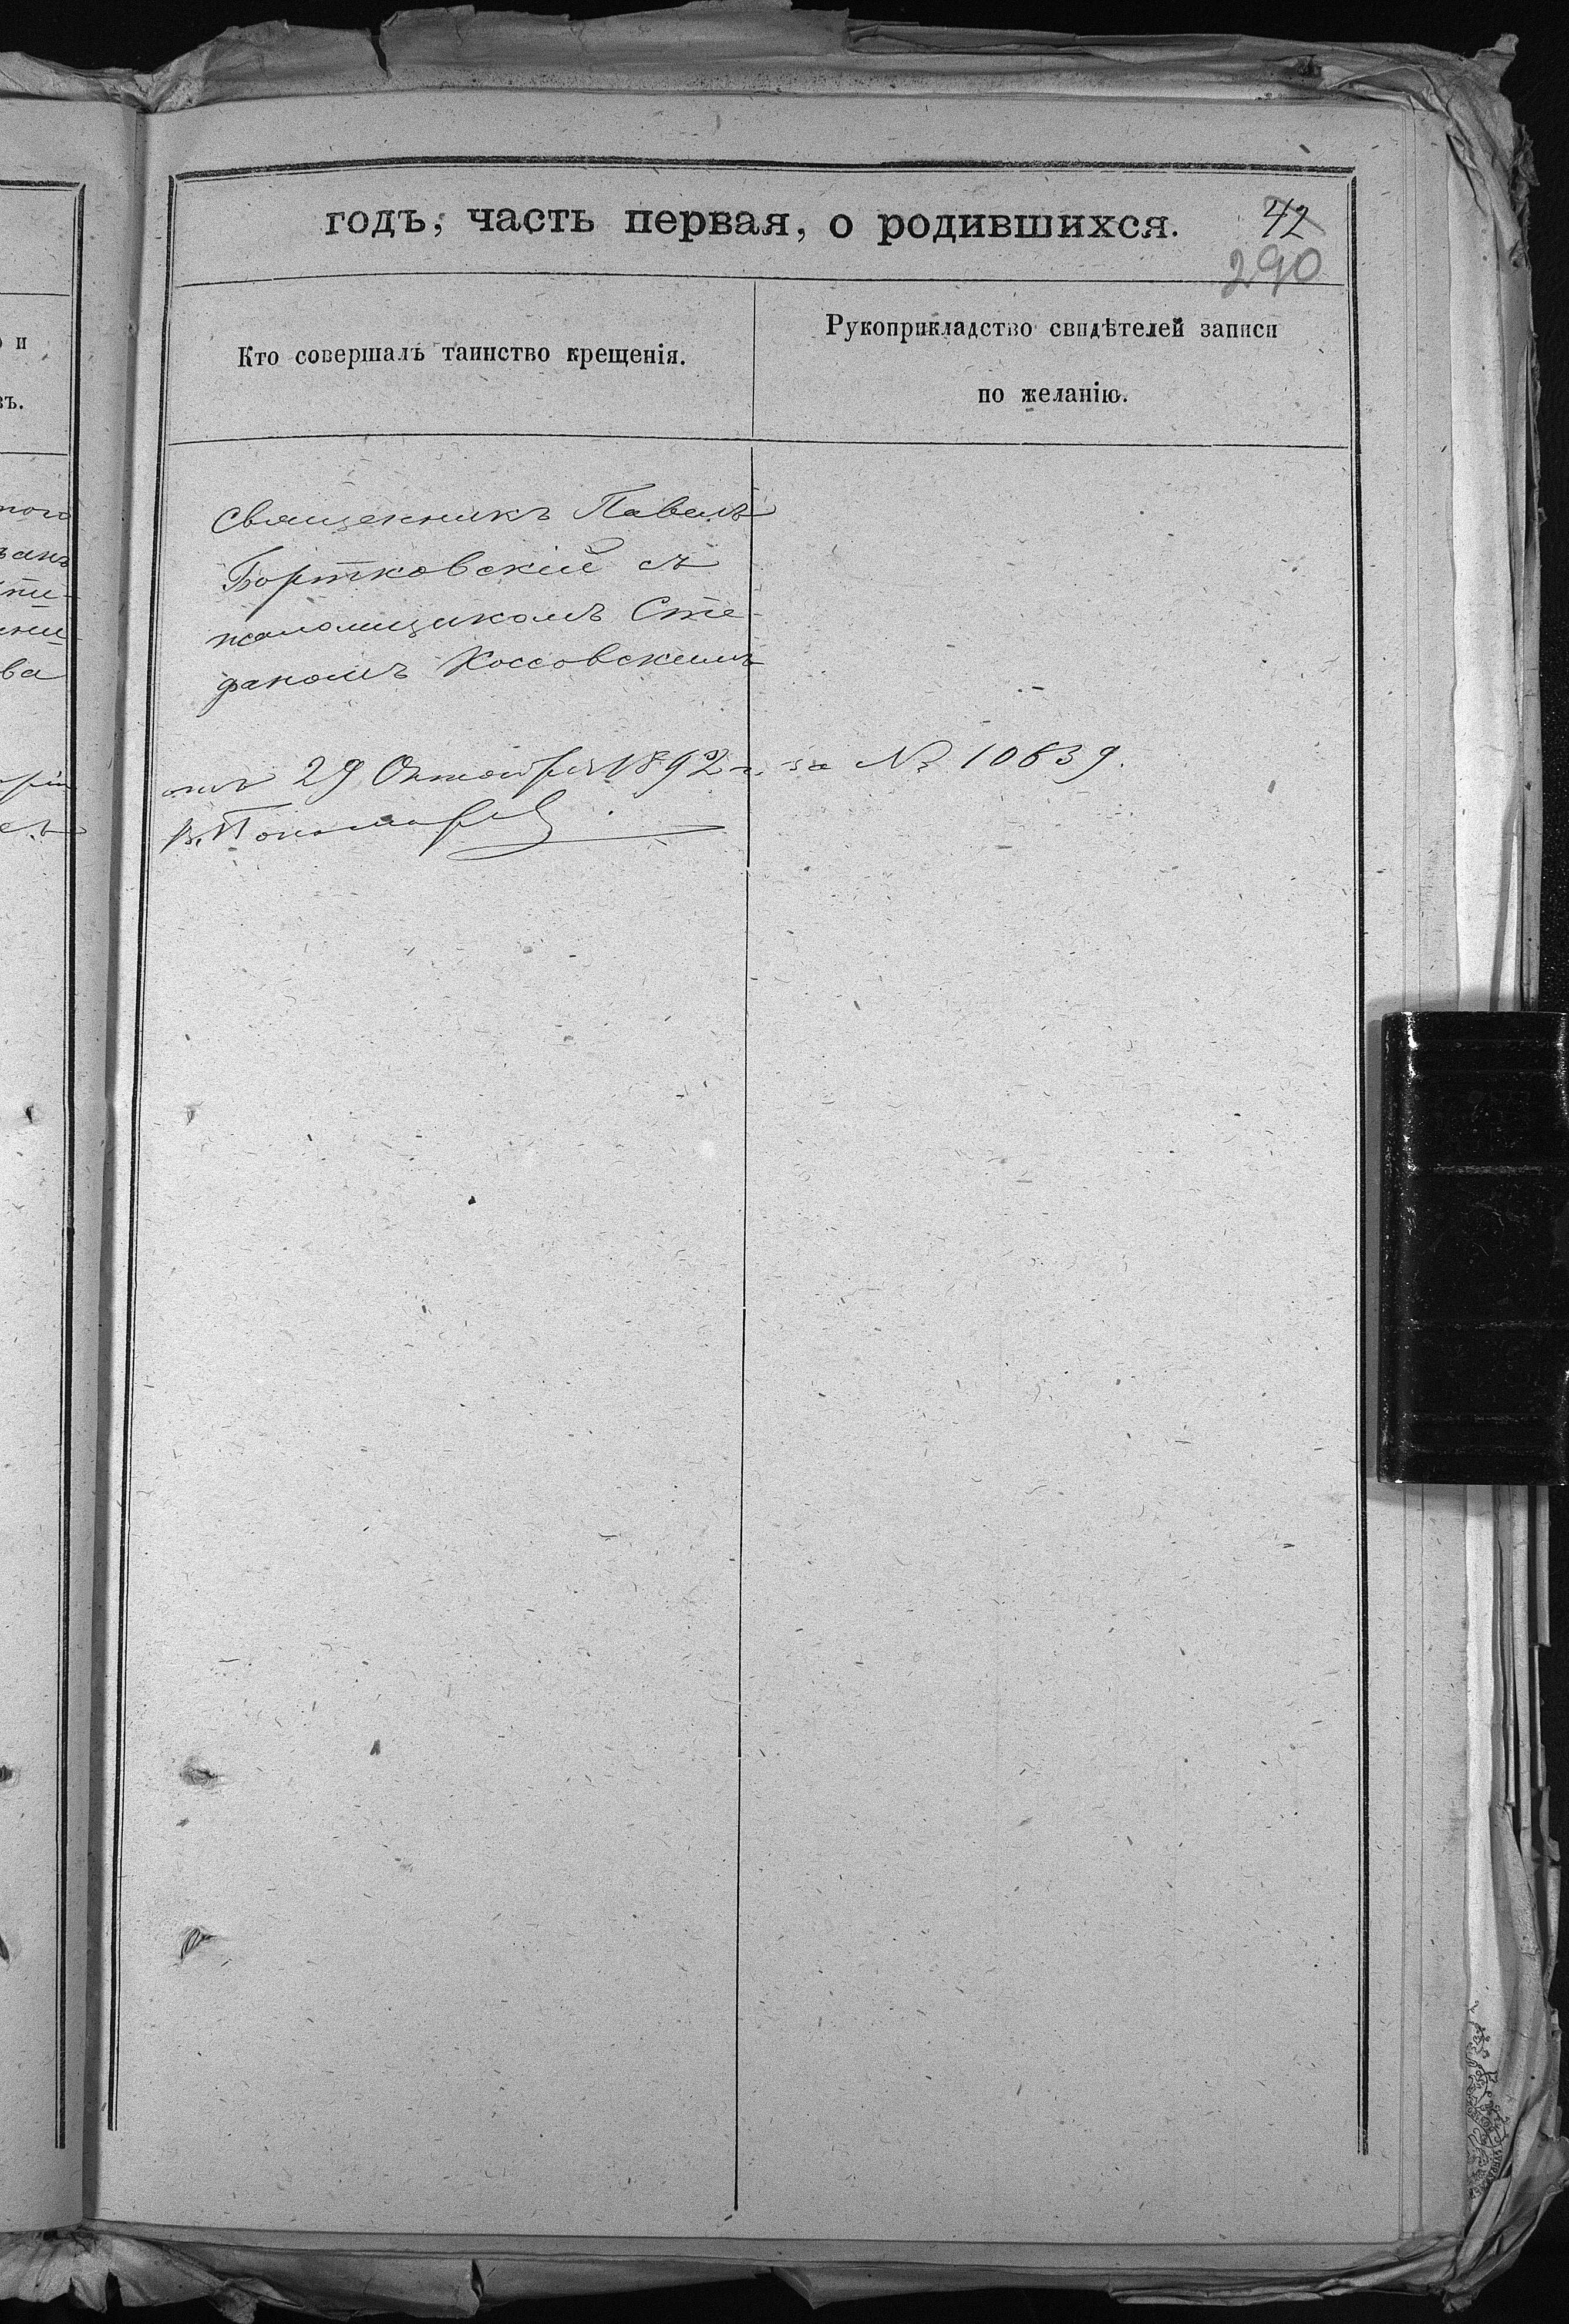 годъ, часть первая, о родившихся.
42
290
Кто совершалъ таинство крещенія.
Рукоприкладство свидѣтелей записи
по желанію.
и
въ.
Священникъ Павелъ
Бортковскій съ
псаломщикомъ Сте-
фаномъ Коссовскимъ
отъ 29 Октября 1892 г. за № 10639.
В. Пономарев
ва